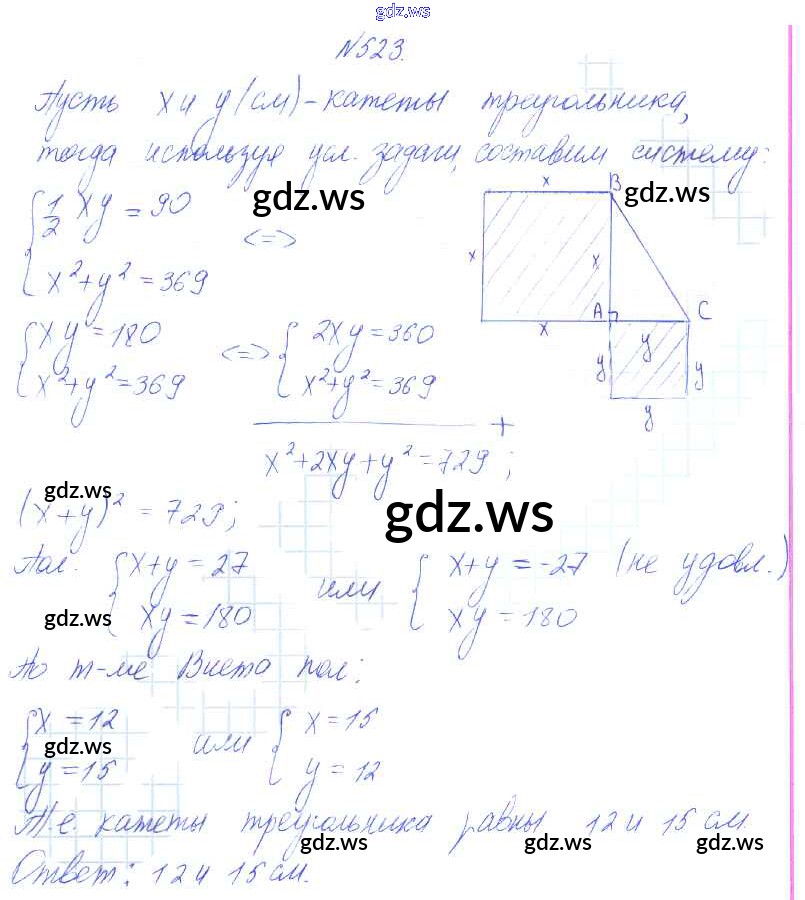 gdz.ws
№523.
Пусть x и y (см) - катеты треугольника,
тогда используя усл. задачи, составим систему:
{ 1/2 xy = 90
x² + y² = 369 <=>
gdz.ws
x
B
gdz.ws
x
x
A
C
x
y
y
y
y
{ xy = 180
x² + y² = 369 <=> { 2xy = 360
x² + y² = 369
+
x² + 2xy + y² = 729;
gdz.ws
(x + y)² = 729;
gdz.ws
Пол. { x + y = 27
xy = 180 или { x + y = -27 (не удовл.)
xy = 180
gdz.ws
По т-ме Виета пол:
{ x = 12
y = 15 или { x = 15
y = 12
gdz.ws
Т.е. катеты треугольника равны 12 и 15 см.
gdz.ws gdz.ws gdz.ws
Ответ: 12 и 15 см.